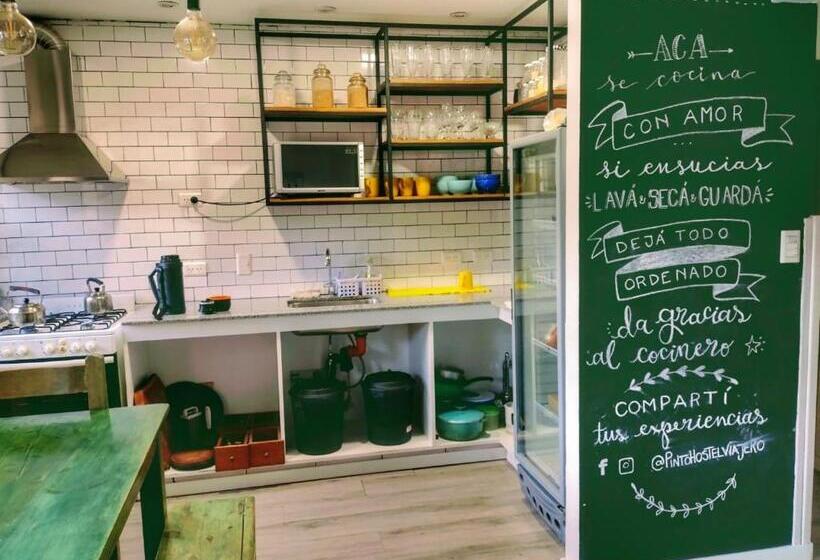 ACA
se cocina
CON AMOR
si ensucias
LAVÁ & SECÁ & GUARDÁ
DEJÁ TODO
ORDENADO
da gracias
al cocinero
COMPARTÍ
tus experiencias
@PINTOHOSTELVIAJERO